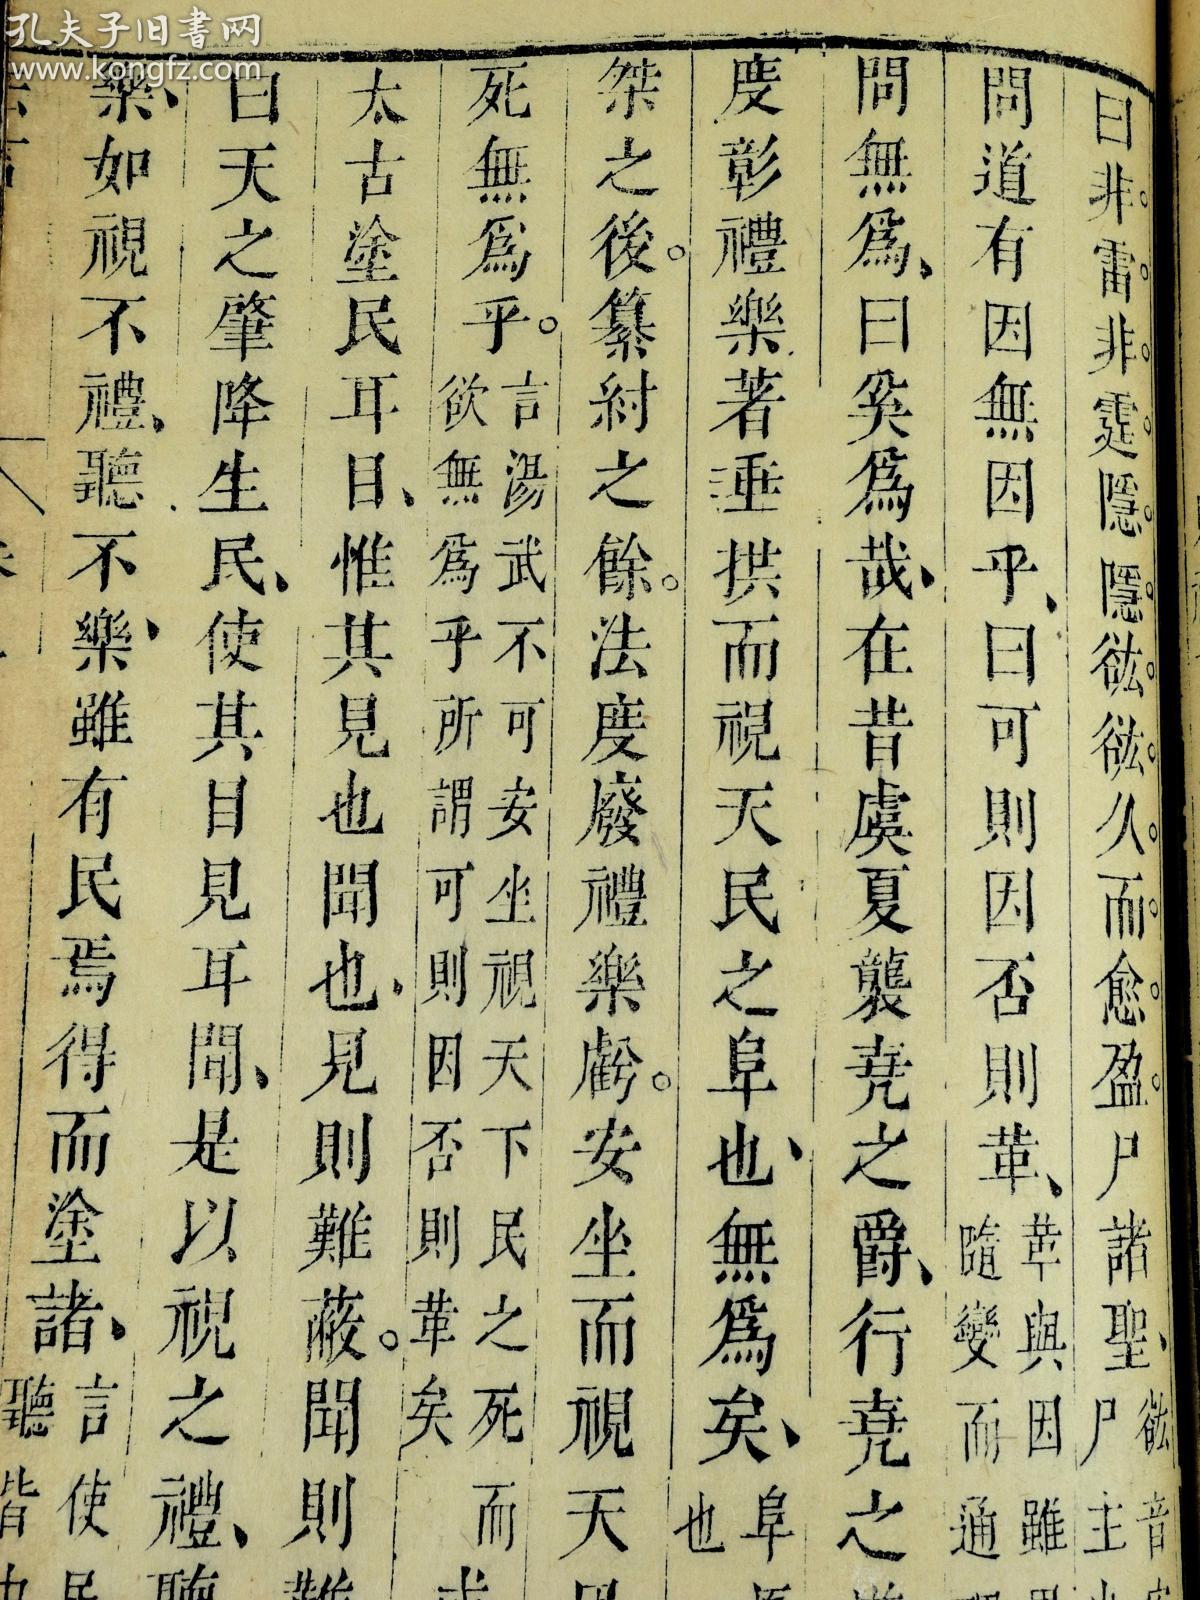 孔夫子旧书网
www.kongfz.com
曰非雷非霆隱隱谹谹久而愈盈尸諸聖谹音
尸主
問道有因無因乎曰可則因否則革革與因雖
隨變而通
問無爲曰奚爲哉在昔虞夏襲堯之爵行堯之
度彰禮樂著垂拱而視天民之阜也無爲矣阜
也
桀之後纂紂之餘法度廢禮樂虧安坐而視天
死無爲乎言湯武不可安坐視天下民之死而
欲無爲乎所謂可則因否則革矣
太古塗民耳目惟其見也聞也見則難蔽聞則
曰天之肇降生民使其目見耳聞是以視之禮
樂如視不禮聽不樂雖有民焉得而塗諸言使
聽皆